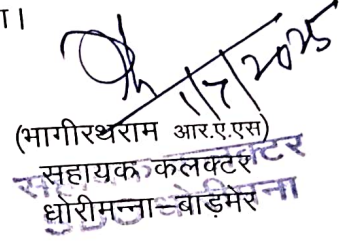 ा।
1/7/2025
(भागीरथराम आर.ए.एस)
सहायक कलक्टर
धोरीमन्ना–बाड़मेर